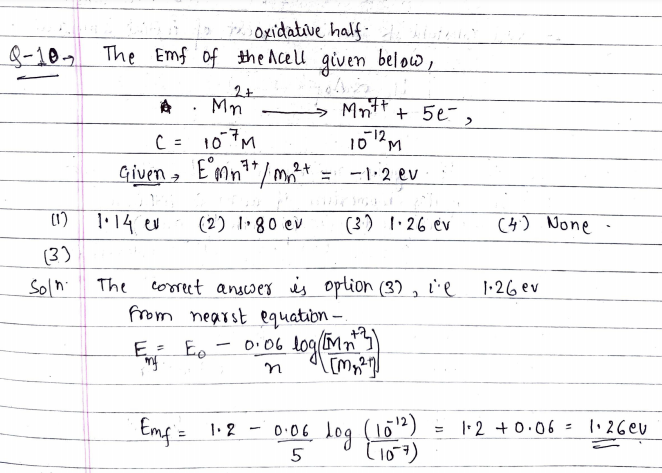 oxidative half.
Q-10→ The Emf of the cell given below,
Mn²⁺ ⟶ Mn⁷⁺ + 5e⁻,
C = 10⁻⁷M 10⁻¹²M
Given → E°Mn⁷⁺/Mn²⁺ = -1.2 ev
(1) 1.14 ev (2) 1.80 ev (3) 1.26 ev (4) None.
(3)
Soln. The correct answer is option (3), i.e 1.26 ev
from nearst equation -
Emf = E₀ - 0.06/n log([Mn⁺⁷]/[Mn²⁺])
Emf = 1.2 - 0.06/5 log (10⁻¹²)/(10⁻⁷) = 1.2 + 0.06 = 1.26ev